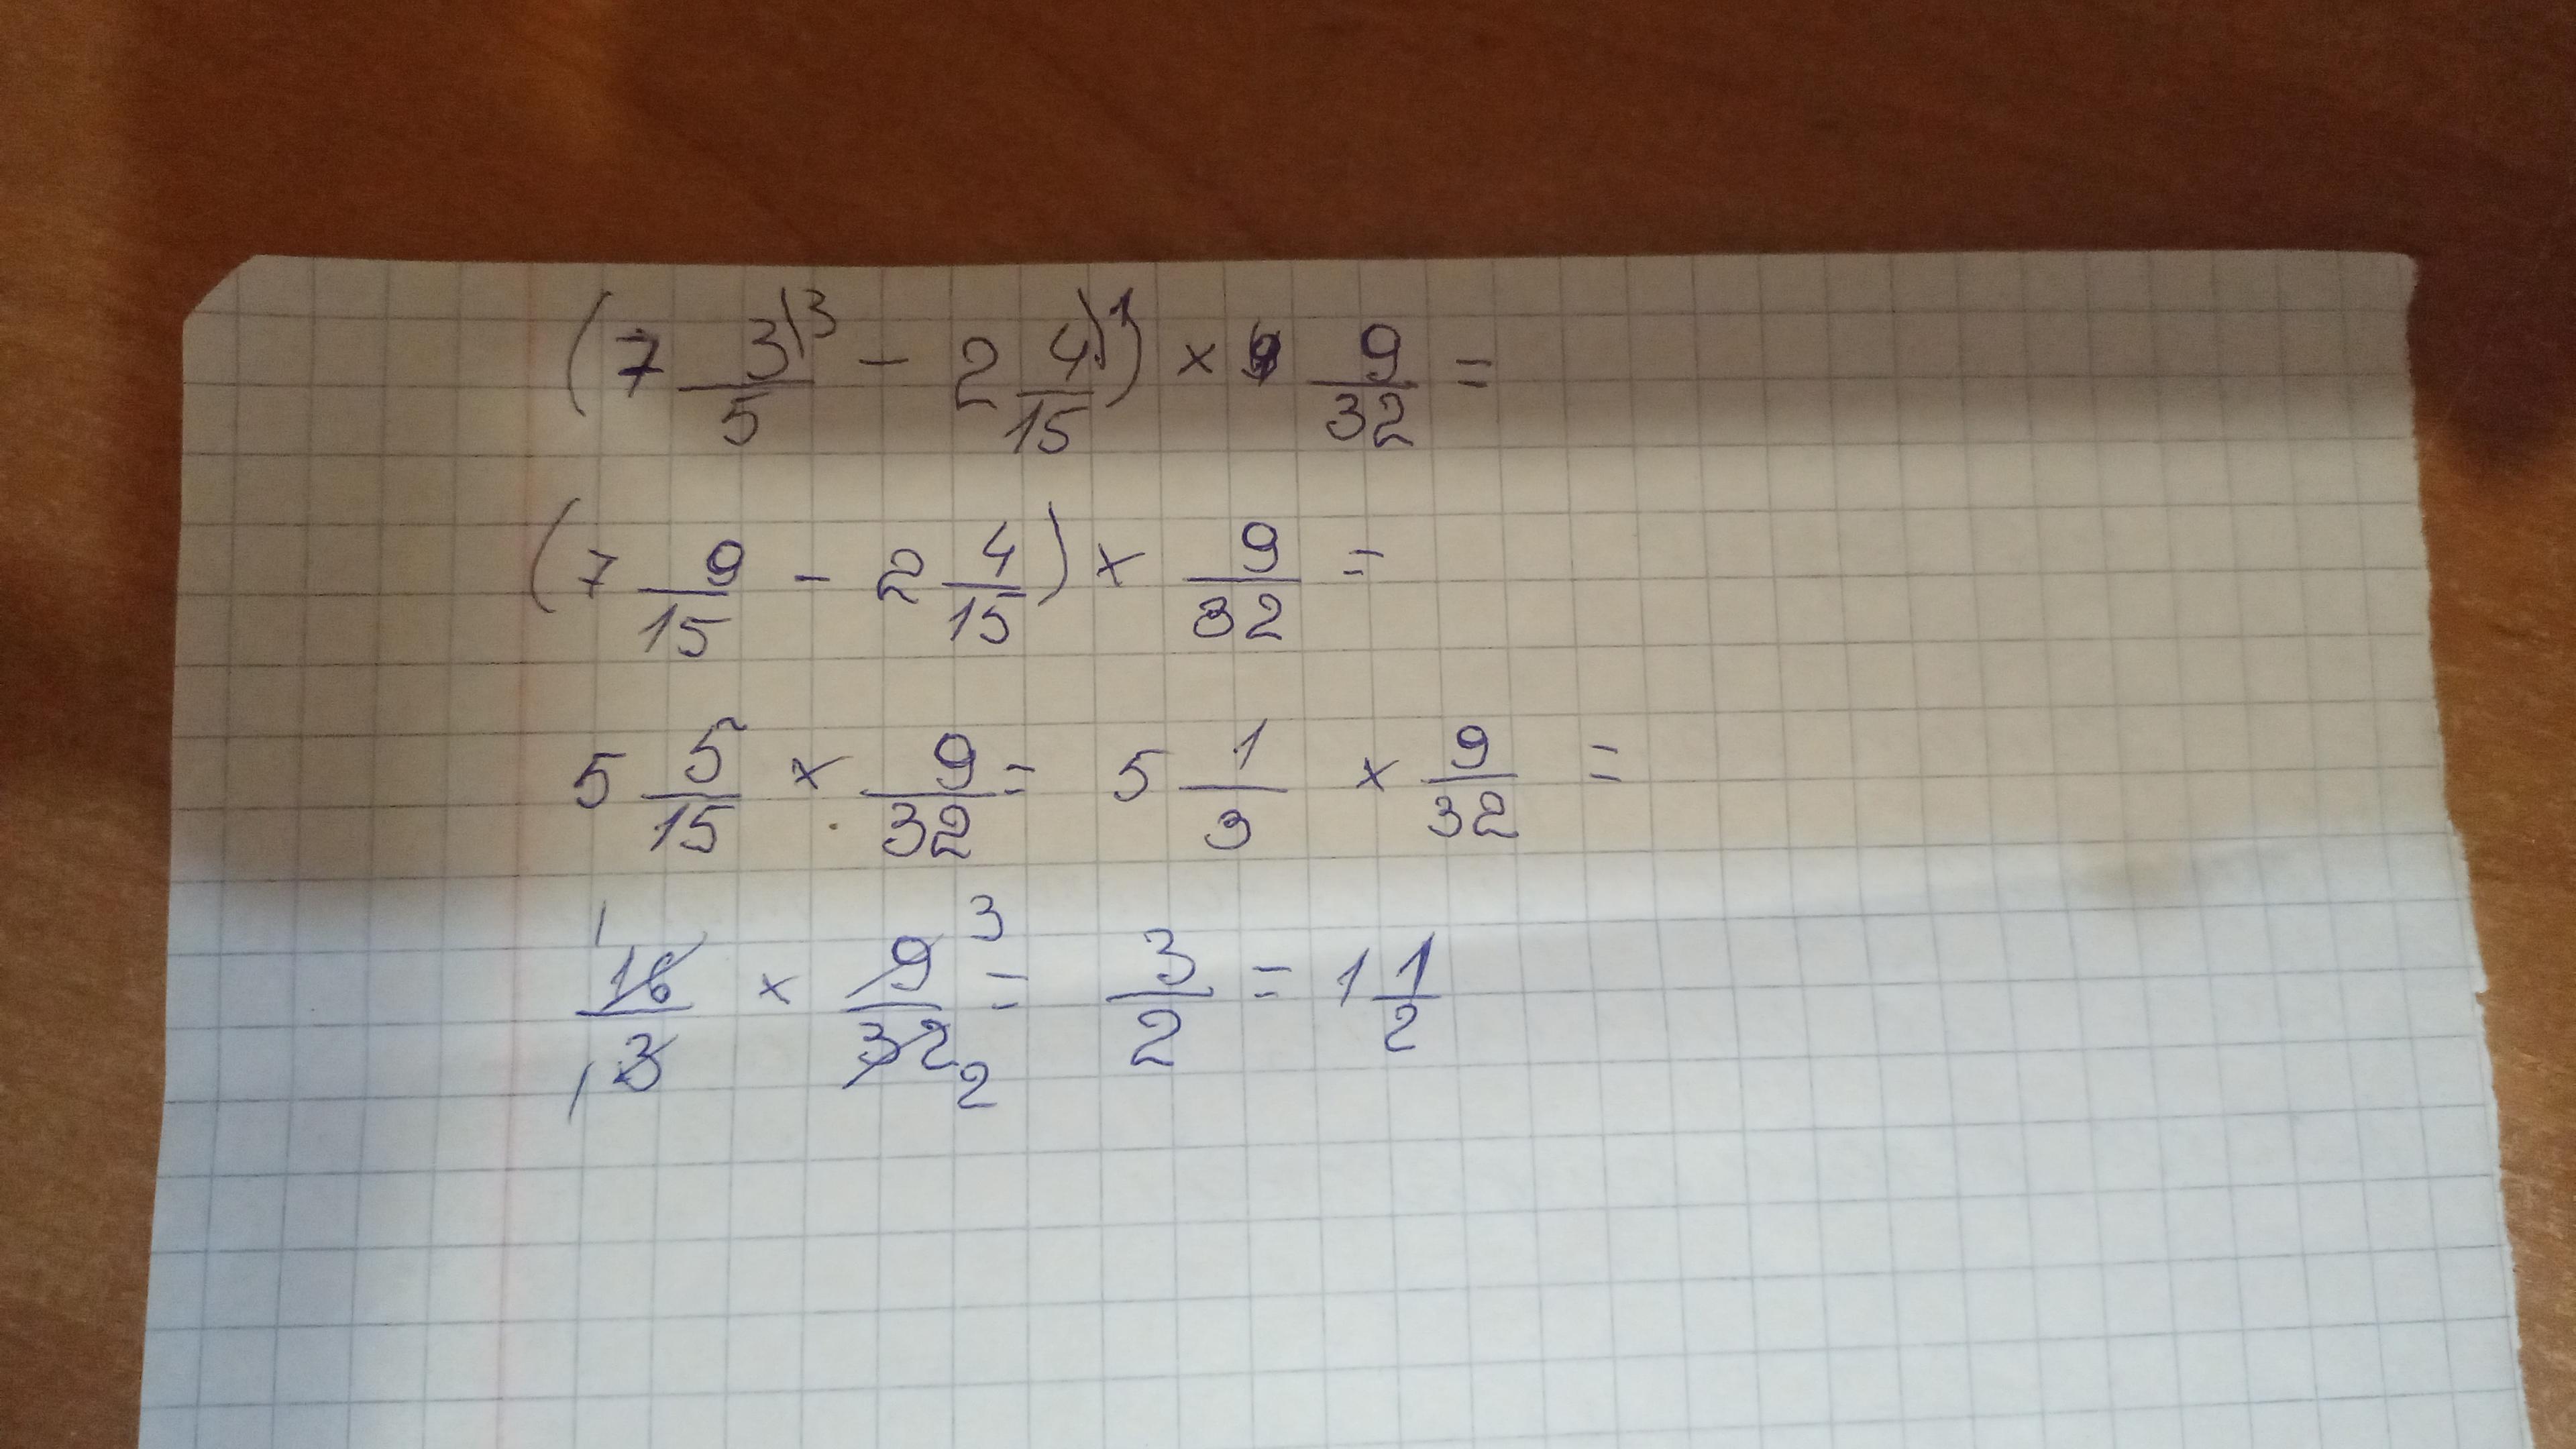 (7 3/5 )3 − 2 4/15 )1) × 9/32 =
(7 9/15 − 2 4/15) × 9/32 =
5 5/15 × 9/32 = 5 1/3 × 9/32 =
1 16/3 1 × 9/32 3 2 = 3/2 = 1 1/2